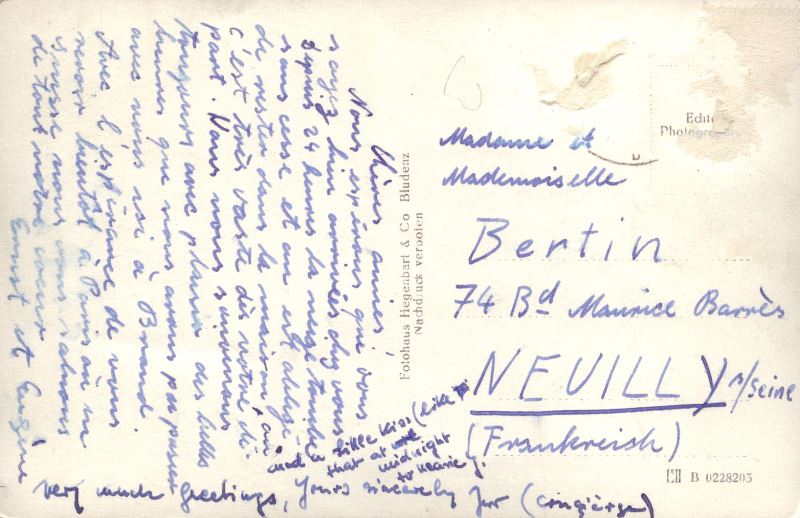 Chères amies,
Nous espérons que vous
soyez bien arrivées chez vous
Depuis 24 heures la neige tombe
sans cesse et on est obligé
de rester dans la maison, où
c'est très vaste dès votre dé-
part. Nous nous souvenons
toujours avec plaisir des belles
heures que nous avons pu passer
avec vous ici à Brand
Avec l'espérance de vous
revoir bientôt à Paris ou in
nous vous saluons
de tout notre coeur
Ernst et Eugène
and a little kiss (like
that at
midnight
to
very much greetings, Yours sincerely
Fotohaus Hegenbart & Co Bludenz
Nachdruck verboten
Madame et
Mademoiselle
Bertin
74 Bd Maurice Barrès
NEUILLY s/Seine
(Frankreich)
B 0228203